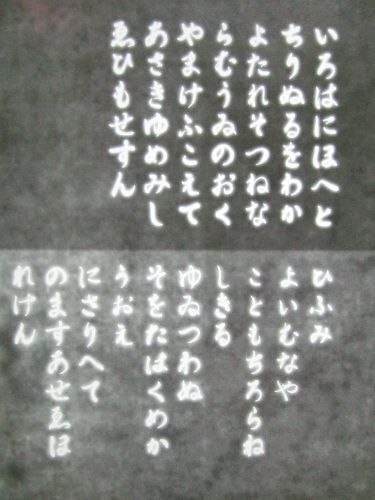 いろはにほへと
ちりぬるをわか
よたれそつねな
らむうゐのおく
やまけふこえて
あさきゆめみし
ゑひもせすん
ひふみ
よいむなや
こともちろらね
しきる
ゆゐつわぬ
そをたはくめか
うおえ
にさりへて
のますあせゑほ
れけん